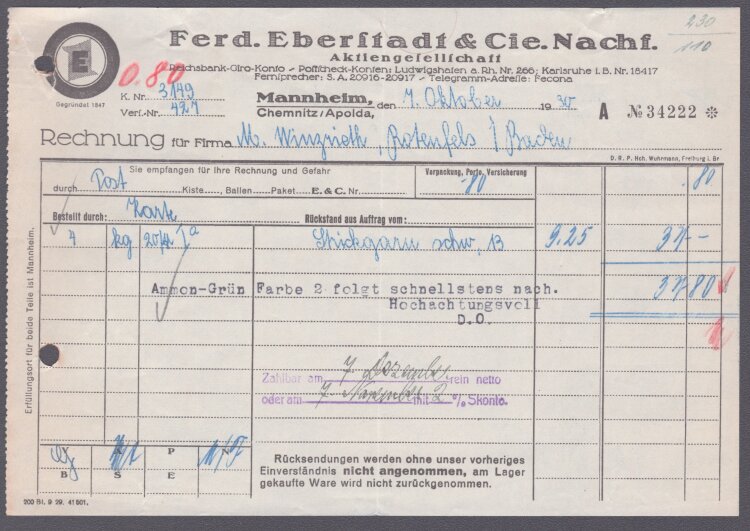 230
110
Ferd. Eberstadt & Cie. Nachf.
Aktiengesellschaft
E
Gegründet 1847
0.80
Reichsbank-Giro-Konto - Postscheck-Konten: Ludwigshafen a. Rh. Nr. 266; Karlsruhe i. B. Nr. 18417
Fernsprecher: S. A. 20916-20917 - Telegramm-Adresse: Fecona
K. Nr. 3149
Vers.-Nr. 427
Mannheim, den 7. Oktober 1930
Chemnitz/Apolda,
A № 34222 ※
Rechnung für Firma M. Winzrieth, Rotenfels / Baden
D. R. P. Hch. Wuhrmann, Freiburg i. Br
Sie empfangen für Ihre Rechnung und Gefahr
Verpackung, Porto, Versicherung
durch Post Kiste Ballen Paket E. & C. Nr.
-80
-.80
Bestellt durch: Karte
Rückstand aus Auftrag vom:
4 kg 20/4 Ia Stickgarn schw. 13 9.25 37 -
Ammon-Grün Farbe 2 folgt schnellstens nach.
37 80
Hochachtungsvoll
D.O.
Zahlbar am 7 Dezember rein netto
oder am 7 November mit 2 % Skonto.
Erfüllungsort für beide Teile ist Mannheim.
A P N
B S E
Rücksendungen werden ohne unser vorheriges
Einverständnis nicht angenommen, am Lager
gekaufte Ware wird nicht zurückgenommen.
200 Bl. 9 29. 41501.